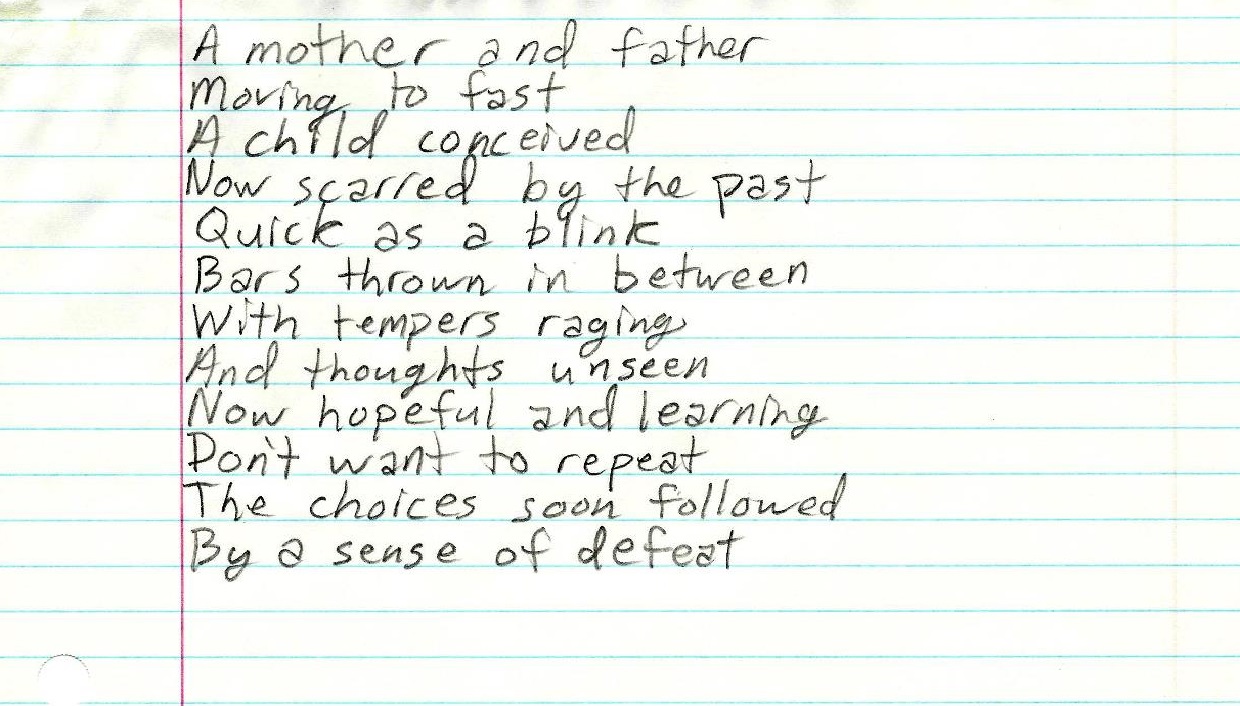 A mother and father
Moving to fast
A child conceived
Now scarred by the past
Quick as a blink
Bars thrown in between
With tempers raging
And thoughts unseen
Now hopeful and learning
Don't want to repeat
The choices soon followed
By a sense of defeat